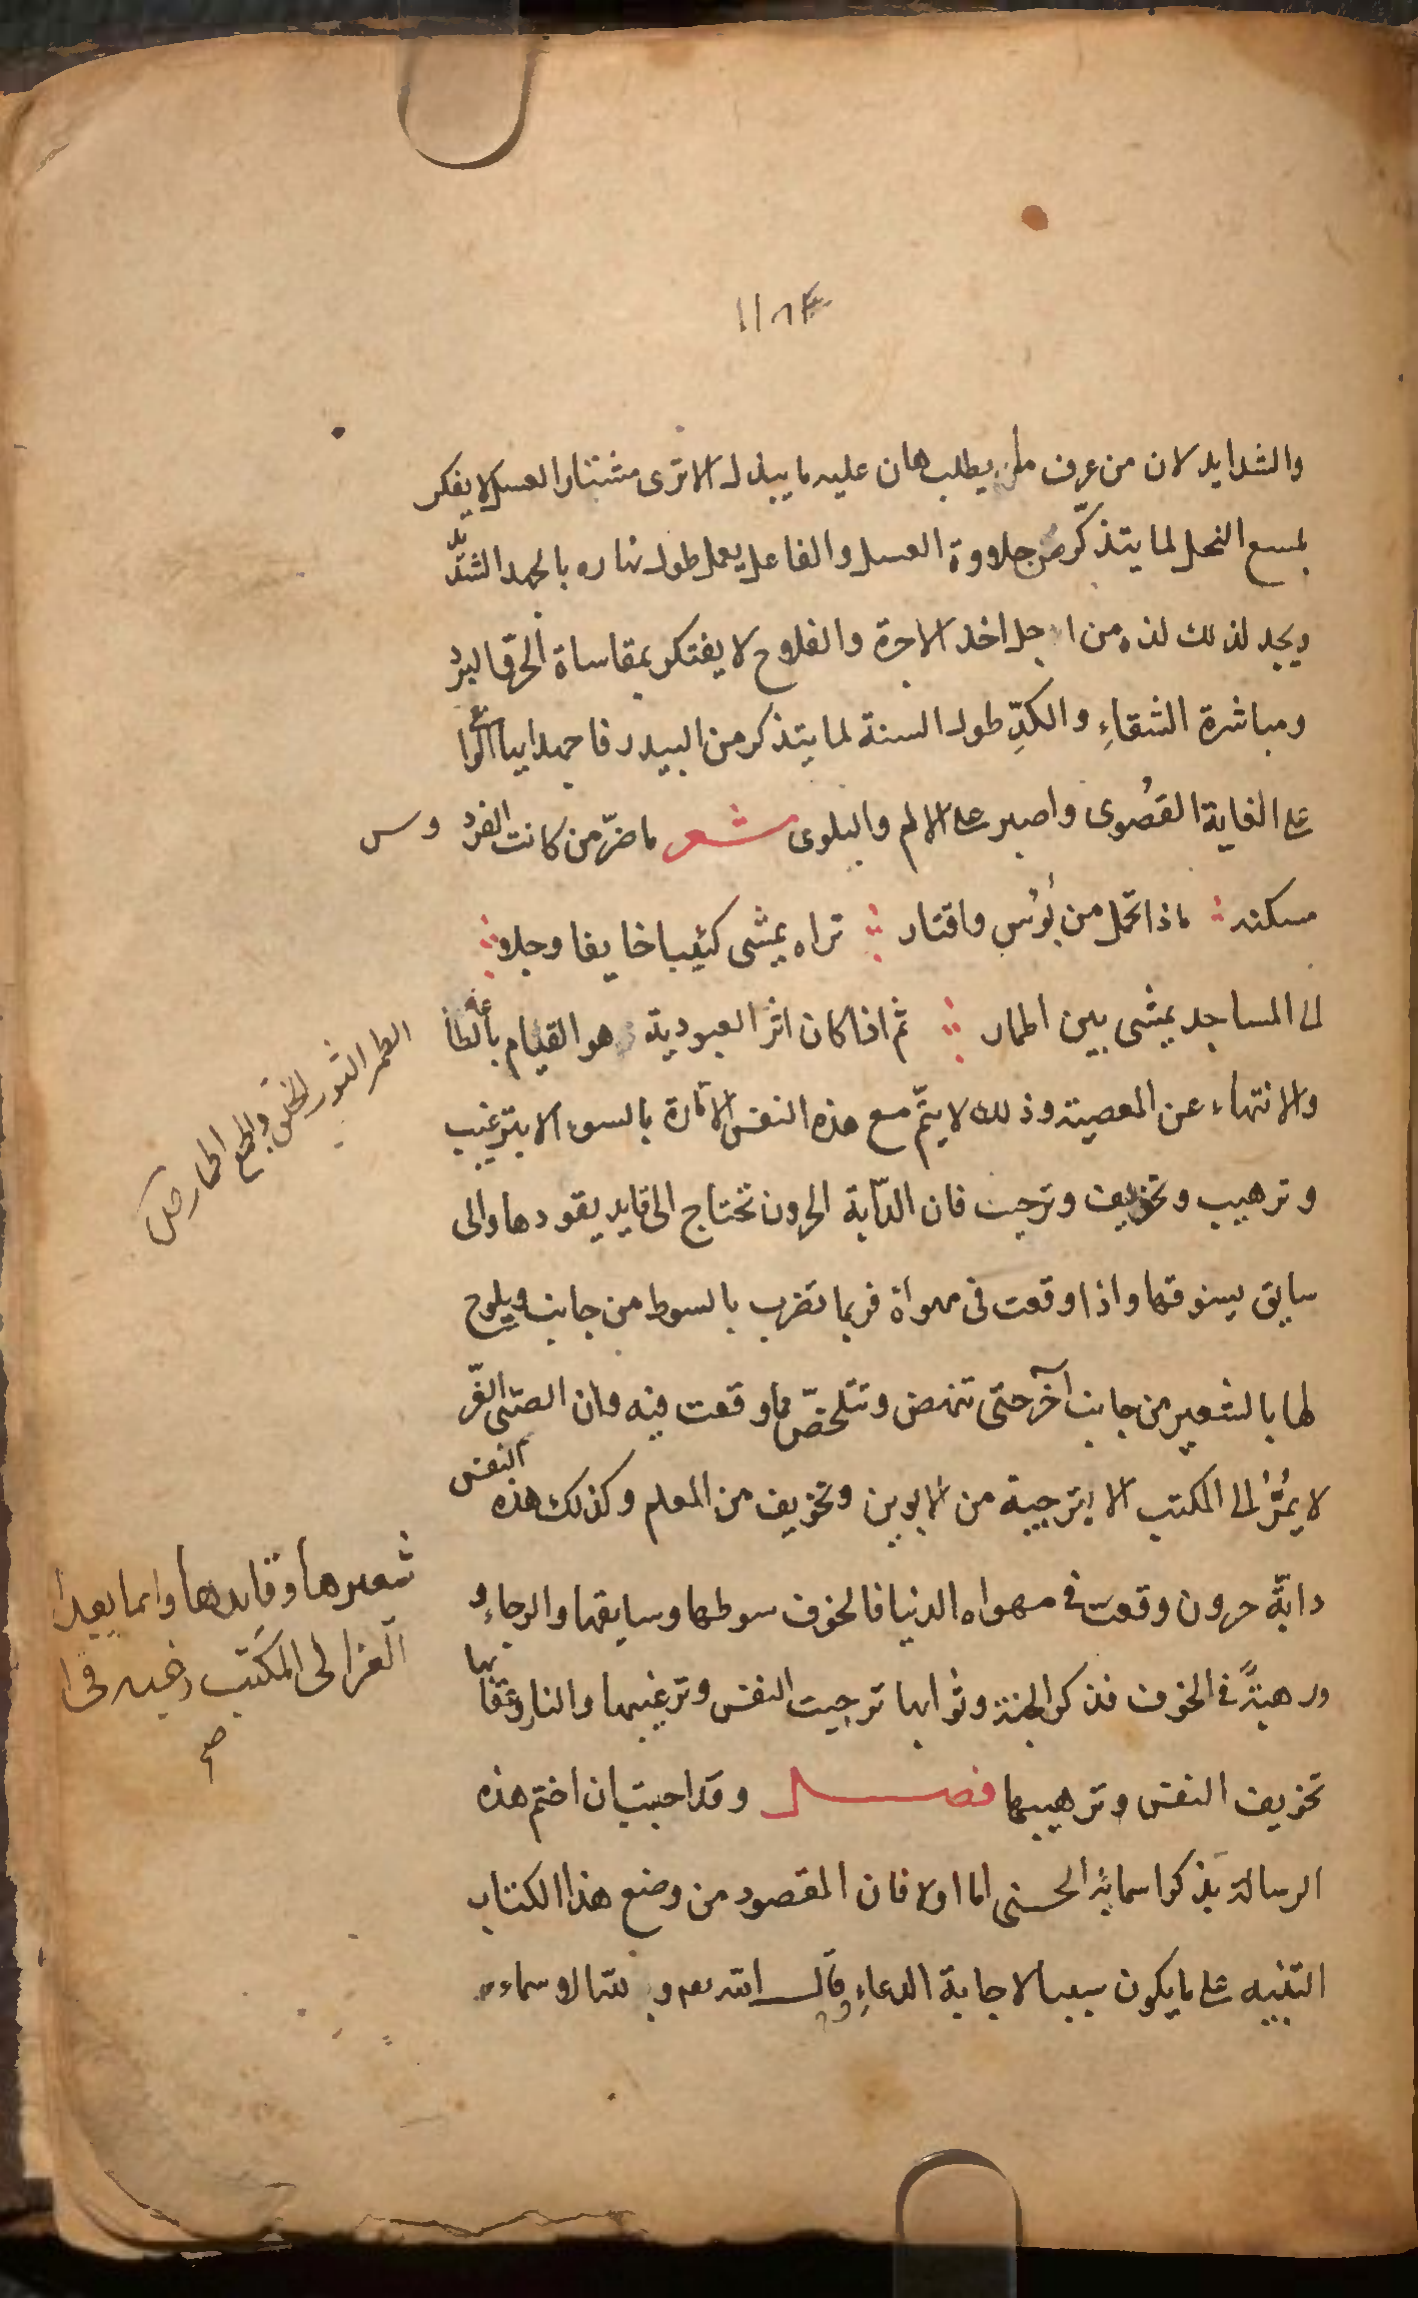 والشدايد لان من عرف ما يطلب هان عليه ما يبذل الا ترى مشتار العسل لا يفكر
بلسع النحل لما يتذكّر من حلاوة العسل والفاعل يعمل طول نهاره بالجهد الشديد
ويجد لذلك لذة من اجل اخذ الاجرة والفلاح لا يفتكر بمقاساة الحر والبرد
ومباشرة الشقاءِ والكدِّ طول السنة لما يتذكر من البيدر فاجهد ايها الراغب
على الغاية القُصوى واصبر على الالم والبلوى شعر ما ضرّ من كانت الفردوس
مسكنه ماذا تحمل من بُؤس واقتار تراه يمشى كئيبا خايفا وجلا
الى المساجد يمشى بين اطمار ثم اذا كان اثر العبودية هو القيام بالطاعة
والانتهاء عن المعصية وذلك لا يتمّ مع هذه النفس الامّارة بالسوء الا بترغيب
وترهيب وتخويف وترجيت فان الدّابة الحرون تحتاج الى قايد يقودها والى
سايق يسوقها واذا وقعت فى مهواة فربما تضرب بالسوط من جانب ويلوح
لها بالشعير من جانب آخر حتى تنهض وتتلخصّ مما وقعت فيه وان الصبى الغرّ
لا يمُرُّ الى المكتب الا بترجية من الابوين وتخويف من المعلم وكذلك هذه النفس
دابّة حرون وقعت فى مهواه الدنيا فالخوف سوطها وسايقها والرجاءِ و
ورهبةً فى الخوف فذكر الجنة وثوابها ترجيت النفس وترغيبها والنار وعقابها
تخويف النفس وترهيبها فصل وقد احببت ان اختم هذه
الرسالة بذكر اسمائه الحسنى اما اولا فان المقصود من وضع هذا الكتاب
التنبيه على ما يكون سببا لاجابة الدعاءِ وقال الله تعم و لله الاسماء
الطمر الثوب الخلق والجمع اطمار ص
شعيرها وقايدها وانما يعدا
الغر الى المكتب رغبه فى ا
صح